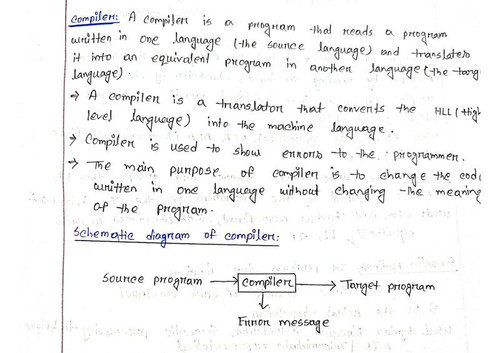 Compiler: A compiler is a program that reads a program
written in one language (the source language) and translates
it into an equivalent program in another language (the targ
language).
→ A compiler is a translator that converts the HLL (Hig
level language) into the machine language.
→ Compiler is used to show errors to the programmer.
→ The main purpose of compiler is to change the cod
written in one language without changing the meaning
of the program.
Schematic diagram of compiler:
Source program → compiler → Target program
Error message